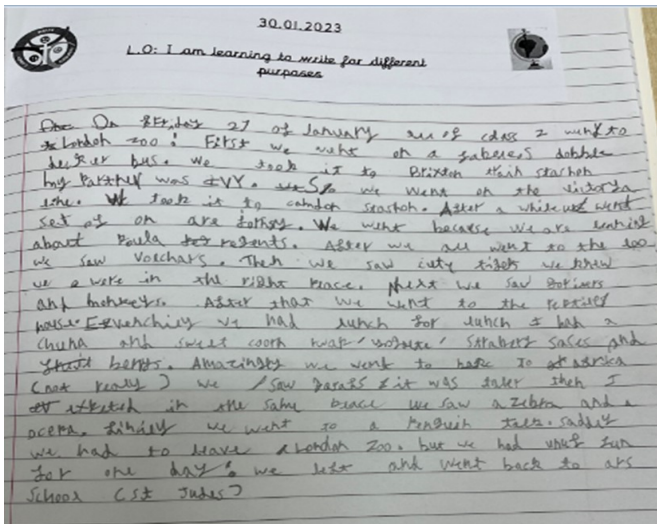 30.01.2023
L.O: I am learning to write for different
purposes
On Friday 27 of January all of class 2 went to
London zoo! First we went on a fabeless dobble
decker bus. we took it to Brixton train stashon
my Partner was IVY. So we went on the victorya
line. We took it to camdon stashon. After a while we went
set of on are Jorney. We went because we are lerning
about Poula regents. After we all went to the zoo
we saw Volchars. Then we saw cuty tigers we knew
we were in the right Peace. Next we saw Gorivers
and monkeys. After that we went to the reptiles
house. Evenchiley we had lunch for lunch I had a
chuna and sweet coorn wrap, yogate, Strabery Sases and
berrys. Amazingly we went to Africa
(not really) we saw garafs it was taler then I
in the same Peace we saw a zebra and a
ocepa. Finley we went to a Penguin talk. Sadley
we had to leave London Zoo. but we had unuf fun
for one day! we left and went back to ars
School (St Judes)